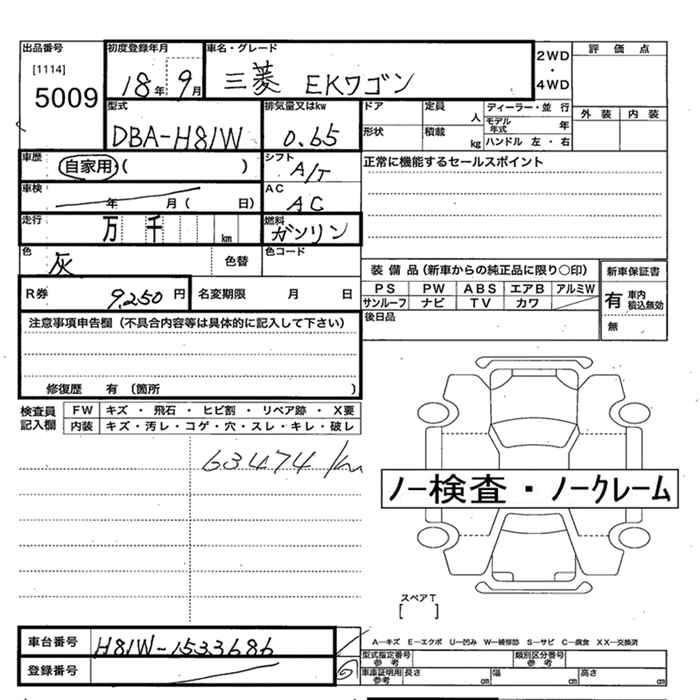 出品番号
[1114]
5009
初度登録年月
18年 9月
車名・グレード
三菱 EKワゴン
2WD
・
4WD
評価点
外装 内装
型式
DBA-H81W
排気量又はkw
0.65
ドア
定員
人
形状
積載
kg
ディーラー・並 行
モデル年式 年
ハンドル 左・右
車歴
自家用・( )
シフト
A/T
正常に機能するセールスポイント
車検
年 月( 日)
AC
AC
走行
万 千 km
燃料
ガソリン
色
灰
色替
色コード
R券
9,250 円
名変期限 月 日
装備品(新車からの純正品に限り○印)
PS PW ABS エアB アルミW
サンルーフ ナビ TV カワ
新車保証書
有 車内積込無効
無
後日品
注意事項申告欄(不具合内容等は具体的に記入して下さい)
修復歴 有 (箇所 )
検査員記入欄
FW キズ・飛石・ヒビ割・リペア跡・X要
内装 キズ・汚レ・コゲ・穴・スレ・キレ・破レ
63474 km
ノー検査・ノークレーム
スペアT
[ ]
車台番号
H81W-1533686
登録番号
A―キズ E―エクボ U―凹み W―補修跡 S―サビ C―腐食 XX―交換済
型式指定番号
参考
類別区分番号
参考
車庫証明用
参考
長さ cm 幅 cm 高さ cm